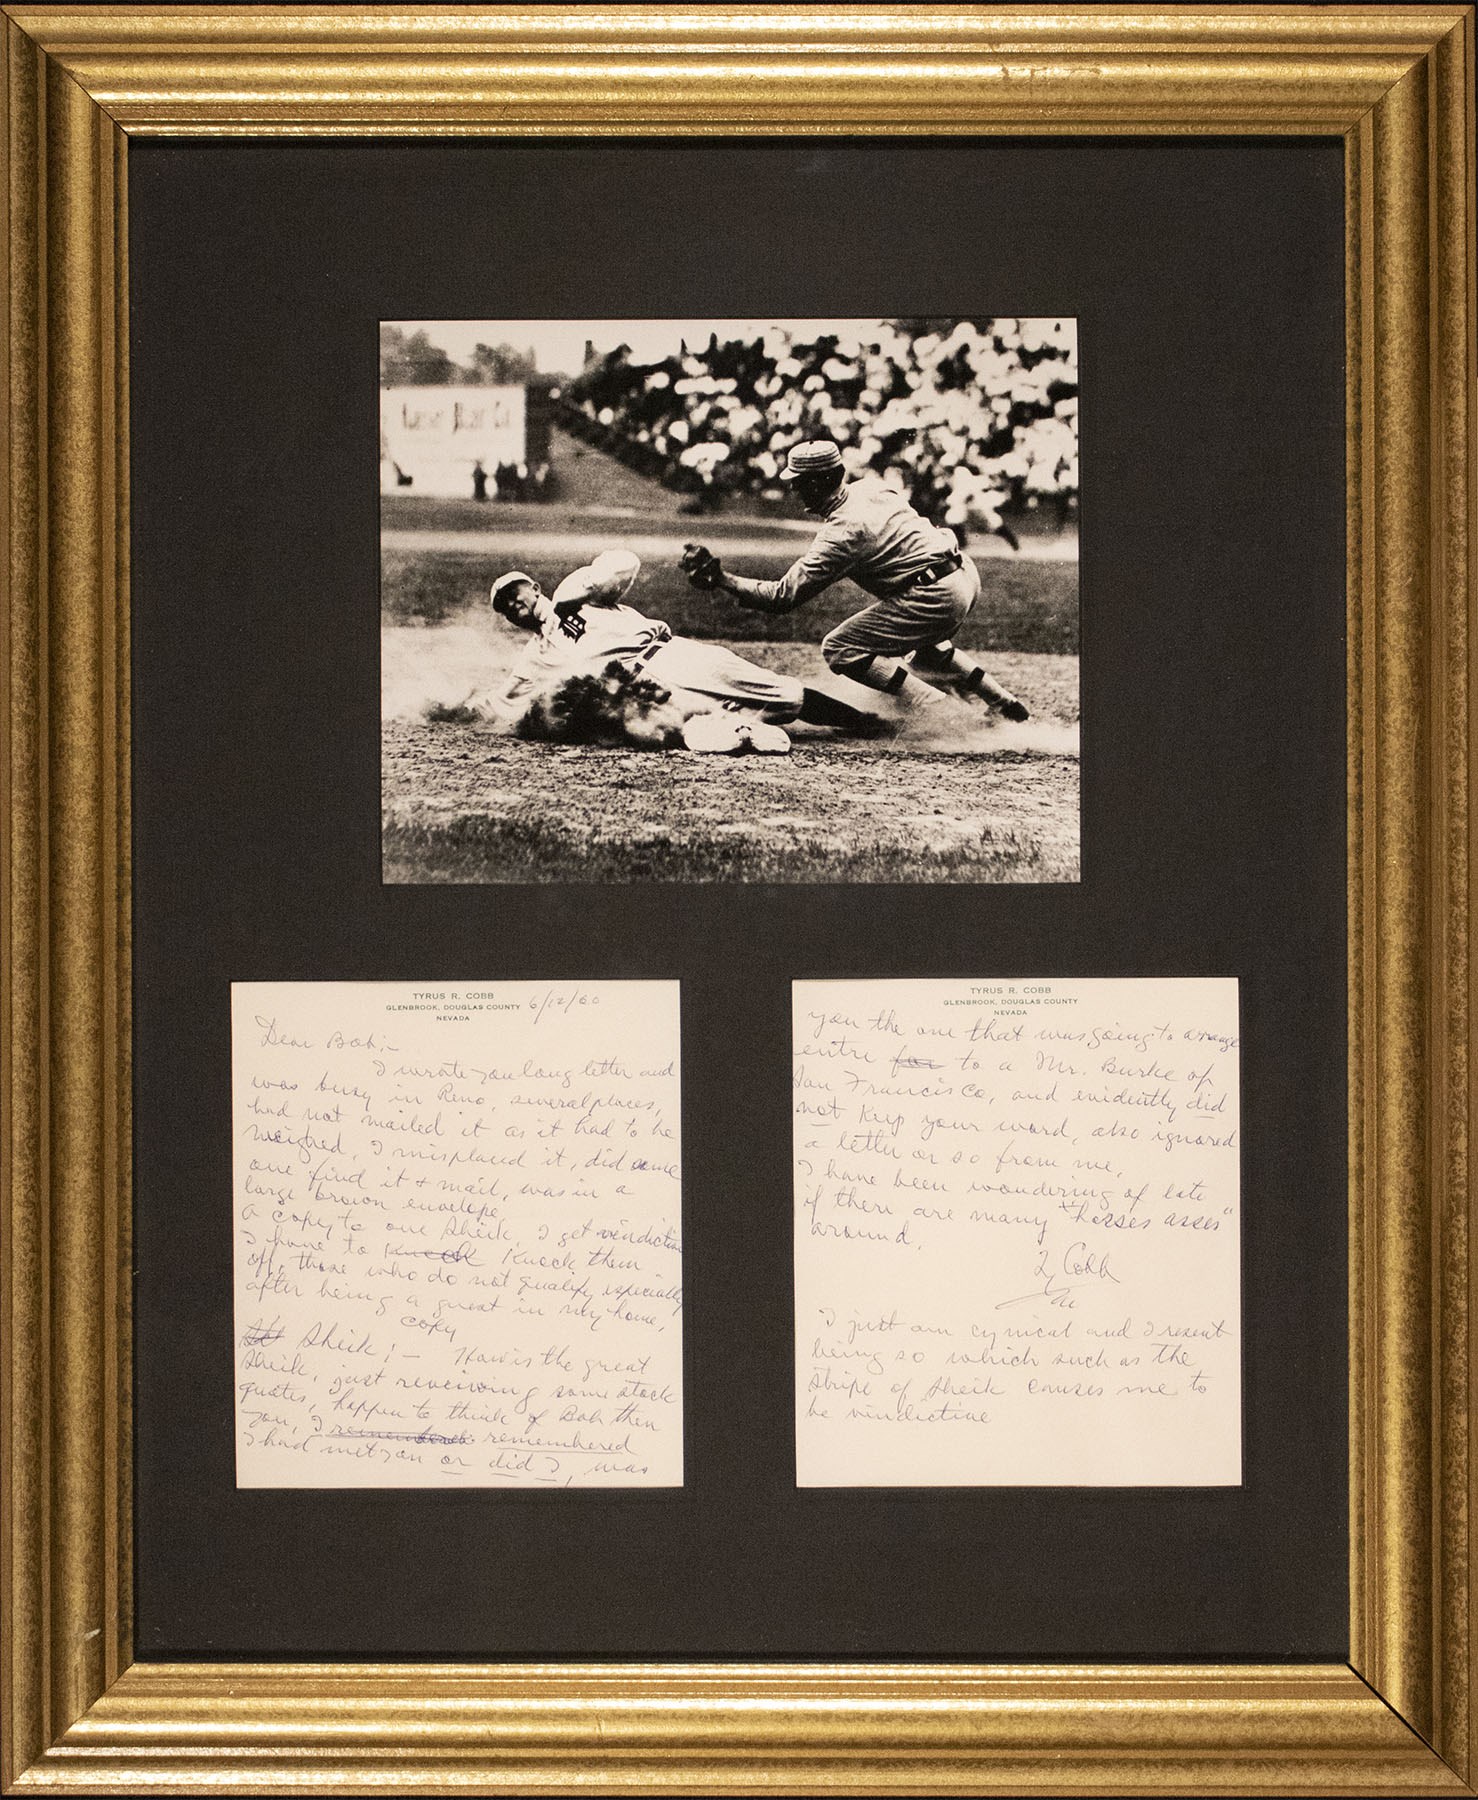 TYRUS R. COBB
GLENBROOK, DOUGLAS COUNTY
NEVADA
6/12/60
Dear Bob:-
I wrote you long letter and
was busy in Reno, several places,
had not mailed it as it had to be
weighed, I misplaced it, did some
one find it + mail, was in a
large brown envelope
A copy to one Sheik, I get vindictive
I have to Knock Knock them
off, those who do not qualify especially
after being a guest in my home,
copy
Sheik:- How is the great
Sheik, just receiving some stock
quotes, happen to think of Bob then
you, I remembered remembered
I had met you or did I, was
TYRUS R. COBB
GLENBROOK, DOUGLAS COUNTY
NEVADA
you the one that was going to arrange
entre for to a Mr. Burke of
San Francisco, and evidently did
not Keep your word, also ignored
a letter or so from me.
I have been wondering of late
if there are many "horses asses"
around.
Ty Cobb
I just am cynical and I resent
being so which such as the
stripe of Sheik causes me to
be vindictive